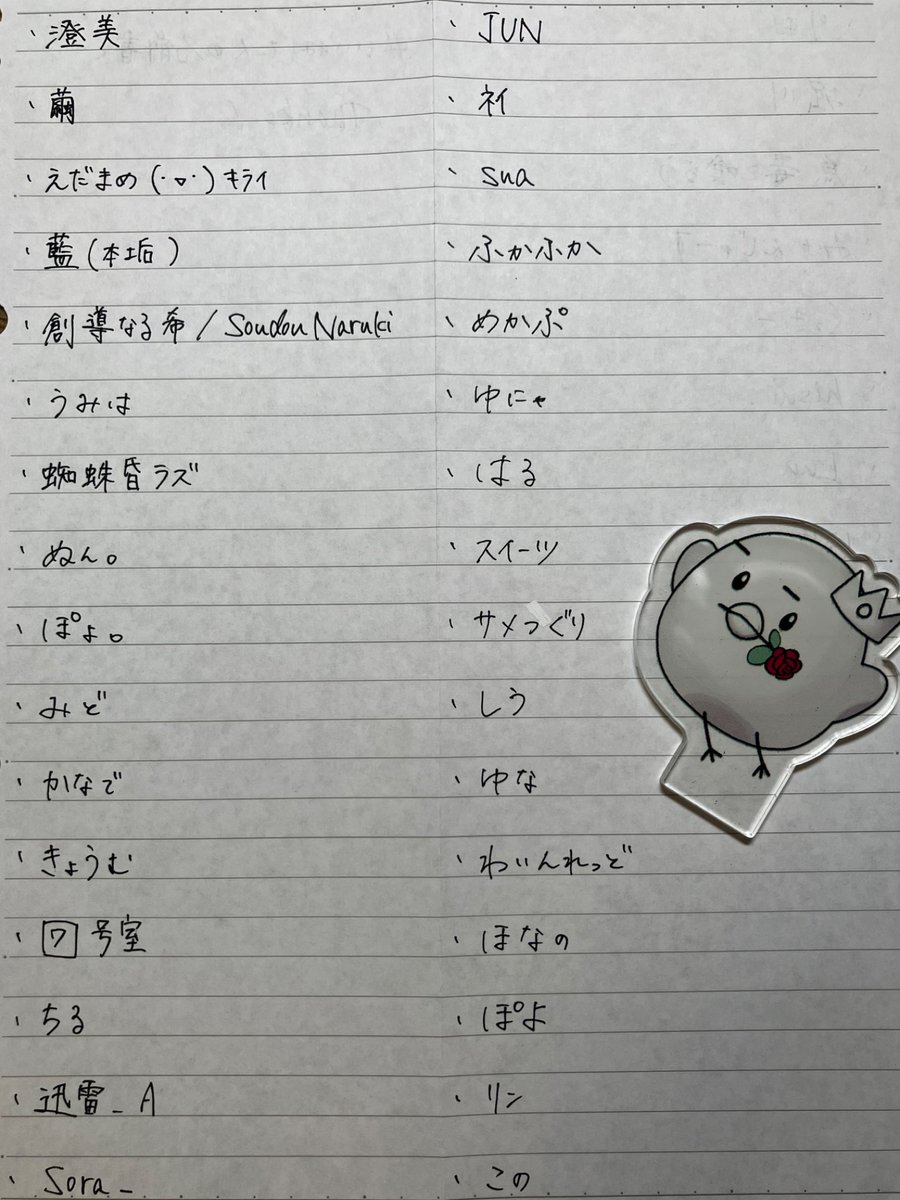 ・澄美
・繭
・えだまめ(·▿·)キライ
・藍(本垢)
・創導なる希/Soudou Naruki
・うみは
・蜘蛛昏ラズ
・ぬん。
・ぽよ。
・みど
・かなで
・きょうむ
・🄆号室
・ちる
・迅雷_A
・Sora_
・JUN
・ネイ
・sua
・ふかふか
・めかぷ
・ゆにゃ
・はる
・スイーツ
・サメつぐり
・しう
・ゆな
・わいんれっど
・ほなの
・ぽよ
・リン
・この